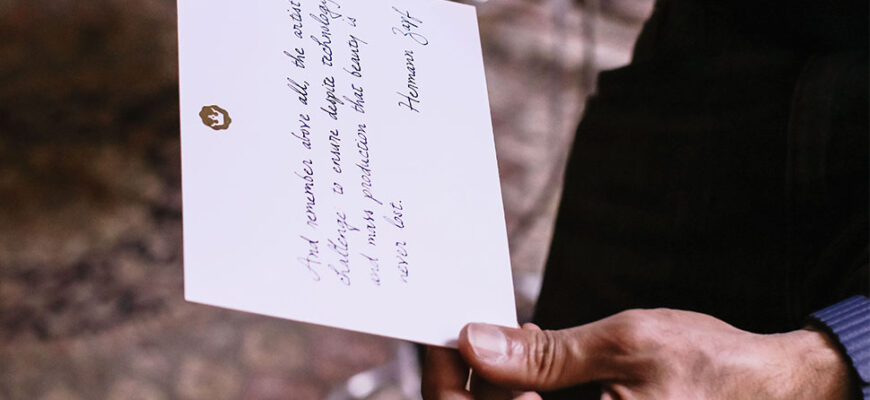 And remember above all, the artist
challenge to ensure despite technology
and mass production that beauty is
never lost.
Hermann Zapf